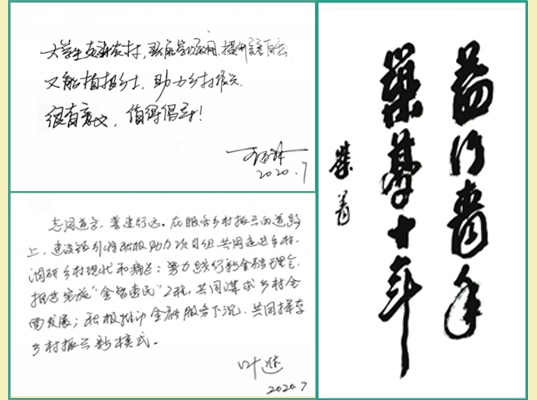 大学生走进农村，既能学以致用，提升综合能力
又能植根乡土，助力乡村振兴
很有意义，值得倡导！
2020.7
志同道合，善建行远。在服务乡村振兴的道路
上，建设银行将积极助力项目组共同走进乡村，
调研乡村现状和痛点；努力践行新金融理念，
推进实施“金智惠民”工程，共同谋求乡村全
面发展；积极推动金融服务下沉，共同探索
乡村振兴新模式。
2020.7
益行
筑梦十年